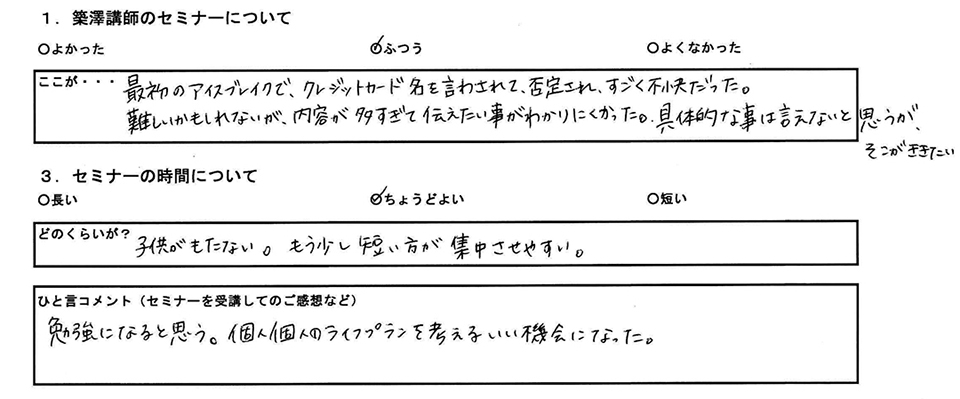 １．築澤講師のセミナーについて
○よかった ○ふつう ○よくなかった
ここが・・・ 最初のアイスブレイクで、クレジットカード名を言わされて、否定され、すごく不快だった。
難しいかもしれないが、内容が多すぎて伝えたい事がわかりにくかった。具体的な事は言えないと思うが、
そこがききたい
３．セミナーの時間について
○長い ○ちょうどよい ○短い
どのくらいが？ 子供がもたない。もう少し短い方が集中させやすい。
ひと言コメント（セミナーを受講してのご感想など）
勉強になると思う。個人個人のライフプランを考えるいい機会になった。